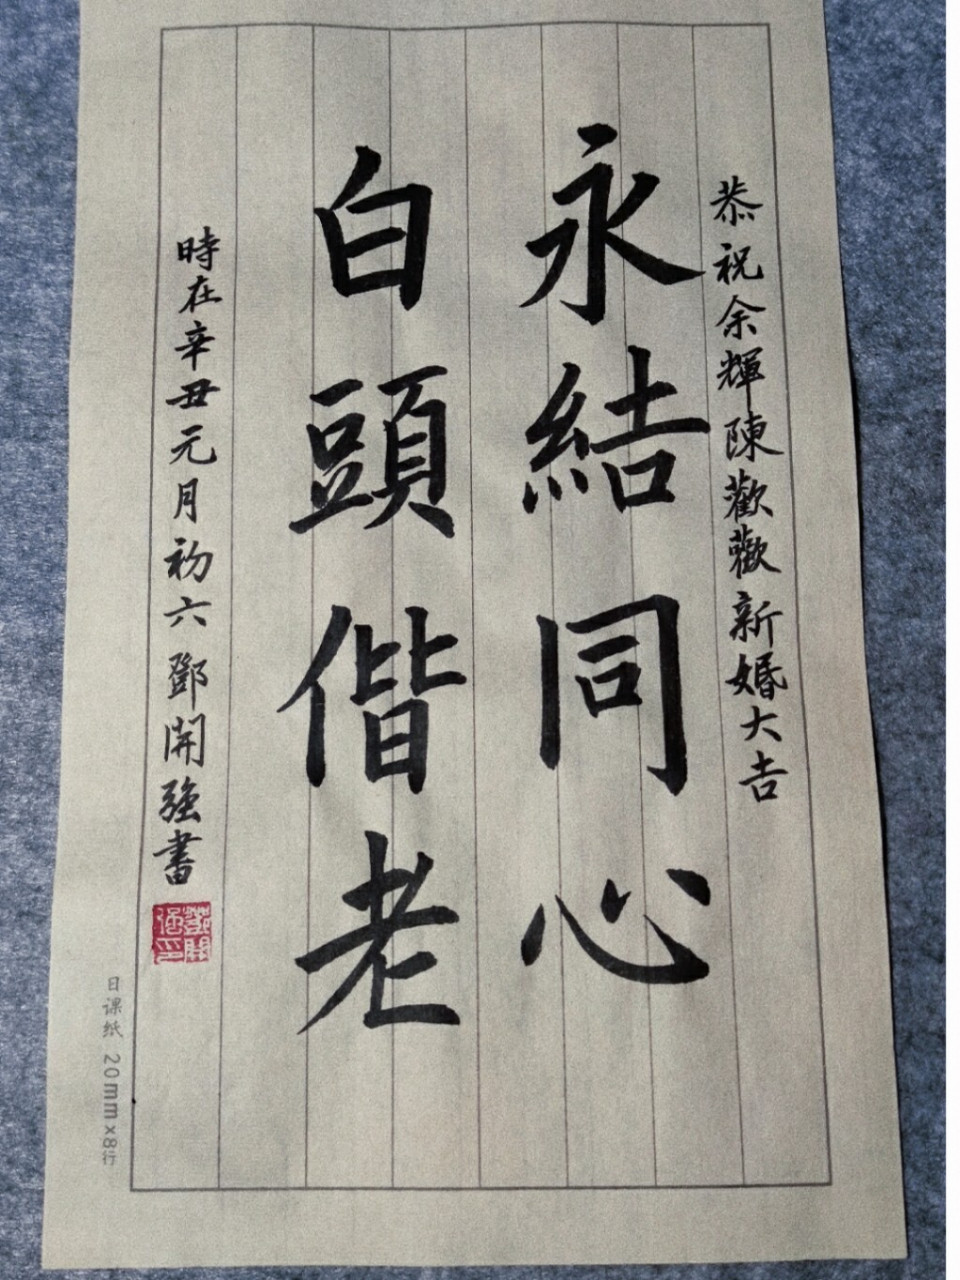 恭祝余輝陳歡歡新婚大吉
永結同心
白頭偕老
時在辛丑元月初六 鄧開強書
鄧開強印
日课纸 20mm×8行